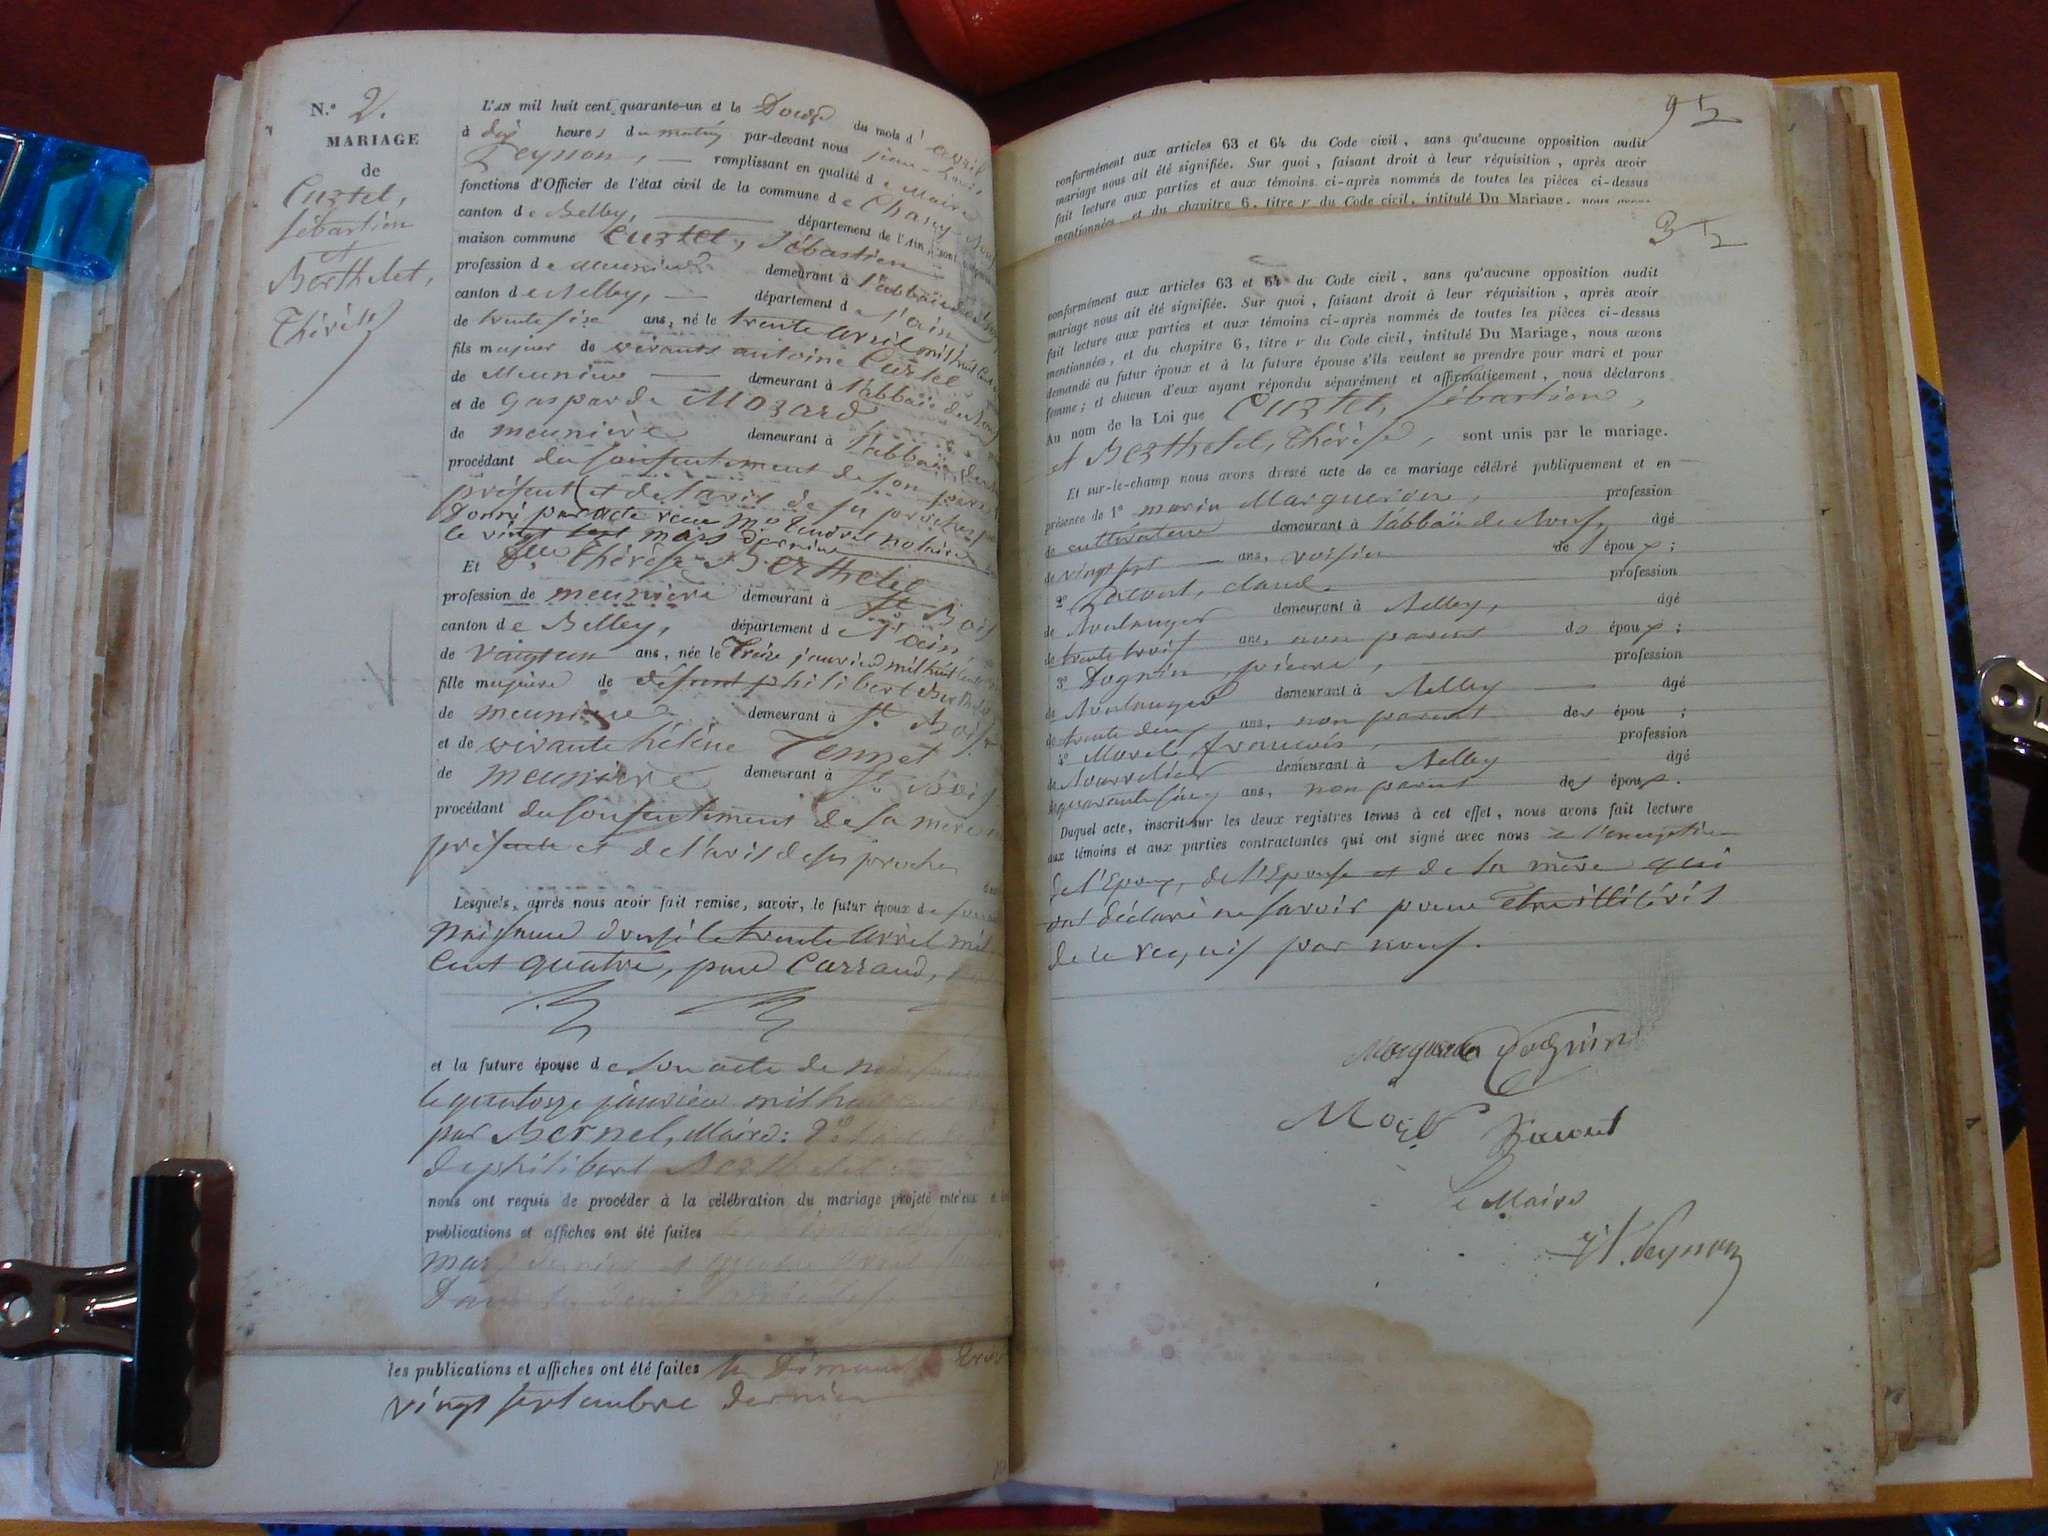 N.° 2.
MARIAGE
de
Curtet,
Sébastien
et
Berthelet,
Thérèse
L'AN mil huit cent quarante-un et le Douze du mois d' avril
à dix heures du matin par-devant nous jean-Louis
Peysson, remplissant en qualité de Maire
fonctions d'Officier de l'état civil de la commune de Chazey
canton de Belley, département de l'Ain, sont
maison commune Curtet, Sébastien
profession de meunier demeurant à l'abbaïe de
canton de Belley, département de l'ain
de trente six ans, né le trente avril mil huit cent
fils majeur de vivants antoine Curtet
de Meunier demeurant à l'abbaïe du
et de Gasparde Mozard
de meunière demeurant à l'abbaïe
procédant du consentement de son père
présent et de l'avis de sa
Donné par acte reçu notaire
le vingt sept mars dernier
Et Dlle Thérèse Berthelet
profession de meunière demeurant à St Bois
canton de Belley, département de l'ain
de vaingt un ans, née le Treize janvier mil huit cent
fille majeure de defunt philibert Berthelet
de meunier demeurant à St Bois
et de vivante hélène Tennet
de meunière demeurant à St Bois
procédant du consentement de sa mère
présente et de l'avis de ses proches
Lesquels, après nous avoir fait remise, savoir, le futur époux de son
naissance dressé le trente avril mil
cent quatre, par Carraud,
et la future épouse de son acte de naissance
le quatorze janvier mil huit cent
par Bernel, Maire: 2°
de philibert Berthelet
nous ont requis de procéder à la célébration du mariage projeté entr'eux
publications et affiches ont été faites
mars dernier et quatre avril
les publications et affiches ont été faites le Dimanche
vingt septembre dernier
95
conformément aux articles 63 et 64 du Code civil, sans qu'aucune opposition audit
mariage nous ait été signifiée. Sur quoi, faisant droit à leur réquisition, après avoir
fait lecture aux parties et aux témoins ci-après nommés de toutes les pièces ci-dessus
mentionnées, et du chapitre 6, titre v du Code civil, intitulé Du Mariage, nous avons
conformément aux articles 63 et 64 du Code civil, sans qu'aucune opposition audit
mariage nous ait été signifiée. Sur quoi, faisant droit à leur réquisition, après avoir
fait lecture aux parties et aux témoins ci-après nommés de toutes les pièces ci-dessus
mentionnées, et du chapitre 6, titre v du Code civil, intitulé Du Mariage, nous avons
demandé au futur époux et à la future épouse s'ils veulent se prendre pour mari et pour
femme; et chacun d'eux ayant répondu séparément et affirmativement, nous déclarons
Au nom de la Loi que Curtet, Sébastien,
et Berthelet, Thérèse, sont unis par le mariage.
Et sur-le-champ nous avons dressé acte de ce mariage célébré publiquement et en
présence de 1° marin Margueron, profession
de cultivateur demeurant à l'abbaïe de âgé
de vingt sept ans, voisin de époux;
2° claude profession
de Boulanger demeurant à Belley, âgé
de trente trois ans, non parent ds époux;
3° Dognin, pierre, profession
de Boulanger demeurant à Belley âgé
de trente deux ans, non parent des épou ;
4° Morel françois, profession
de Bourrelier demeurant à Belley âgé
de quarante cinq ans, non parent des époux.
Duquel acte, inscrit sur les deux registres tenus à cet effet, nous avons fait lecture
aux témoins et aux parties contractantes qui ont signé avec nous à l'exception
de l'Epoux, de l'Epouse et de sa mère qui
ont déclaré ne savoir pour etre illitérés
de ce requis par nous.
Margueron Dognin
Morel
Le Maire
Peysson